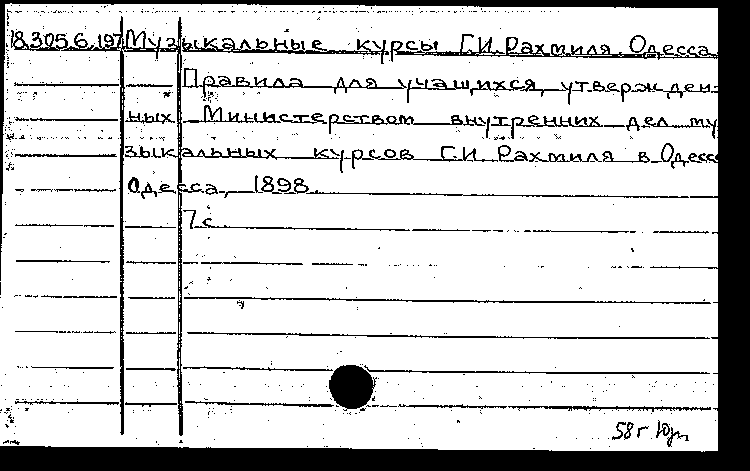 18.305.6.197 Музыкальные курсы Г.И. Рахмиля. Одесса.
Правила для учащихся, утвержден-
ных Министерством внутренних дел му
зыкальных курсов Г.И. Рахмиля в Одесс
Одесса, 1898.
7 с.
58 г.